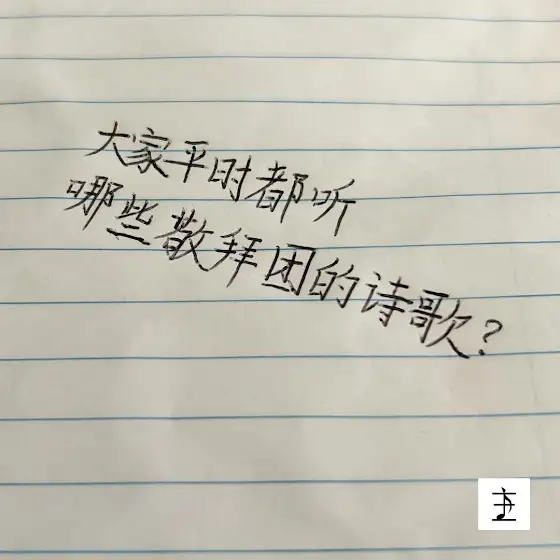 大家平时都听
哪些敬拜团的诗歌?